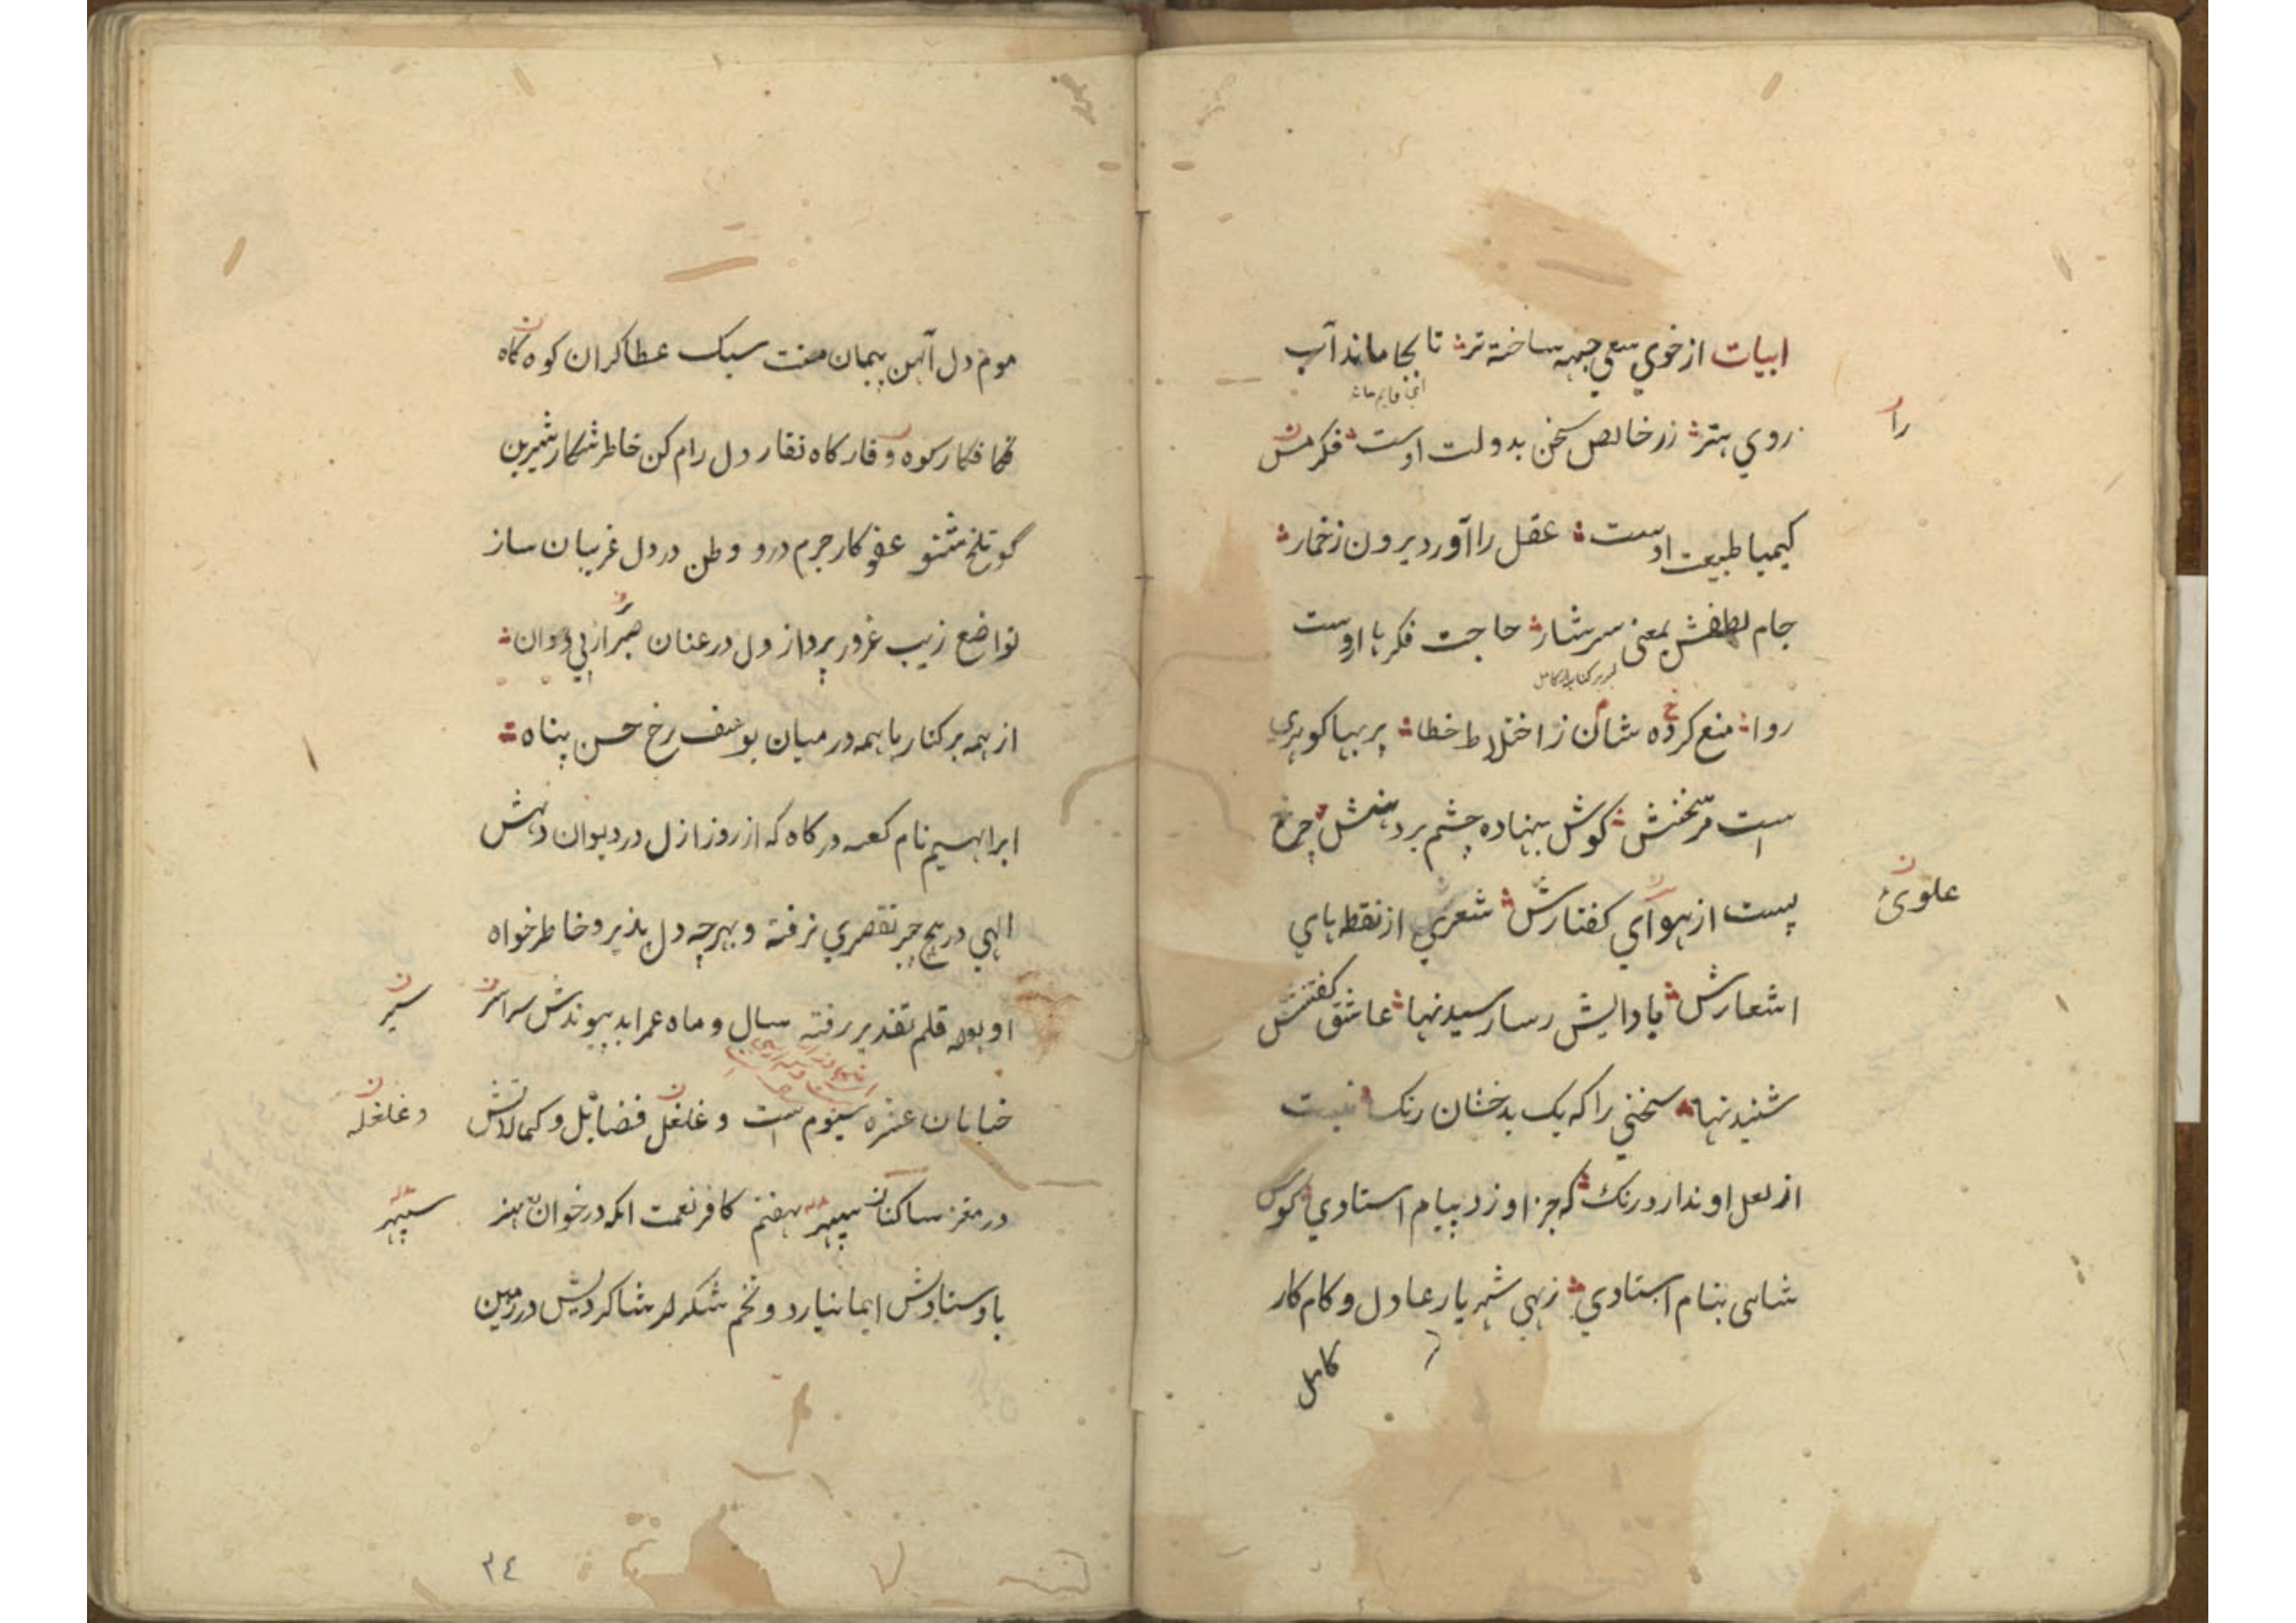 ابیات از خوي سعي جبهه ساخته تر تا بجا ماند آب
روي هنر زر خالص سخن بدولت اوست فکر مس
را
کیمیا طبیعت اوست عقل را آورد برون ز خمار
جام لطفش بمعنی سرشار حاجت فکر با او است
روا منع کرده شان ز اختلاط خطا پر بها کوهري
است مر سخنش کوش بنهاده چشم بر دهنش چرخ
پست از هواي کفتارش شعري از نقطه هاي
علوی
اشعارش با دایش رسا رسیدنها عاشق کفتنش
شنیدنها سخني را که یک بدخشان رنک نیست
از لعل او ندارد رنک که جز او زد بپیام استادي کوس
شاهی بنام استادي زهي شهریار عادل و کام کار
کامل
موم دل آهن پیمان منت سبک عطا کران کوه کاه
کوه وقار کاه نقار دل رام کن خاطر شکار شیرین
کو تلخ شنو عفو کار جرم درو وطن در دل غریبان ساز
تواضع زیب غرور پرداز دل در عنان
از همه بر کنار با همه در میان یوسف رخ حسن پناه
ابراهیم نام کعبه درکاه که از روز ازل در دیوان دهش
الهي در هیچ چیز تقصیري نرفته و بهر چه دل پذیر و خاطر خواه
او بود قلم تقدیر رفته سال و ماه عمر ابد پیوندش سراسر
سیر
خیابان عشره سیوم است و غلغل فضایل و کمالاتش
و غلغله
در مغز ساکنان سپهر هفتم کافر نعمت انکه در خوان هنر
سپهر
باوستادش ایما نیارد و تخم شکر شاکردیش در زمین
٣٤